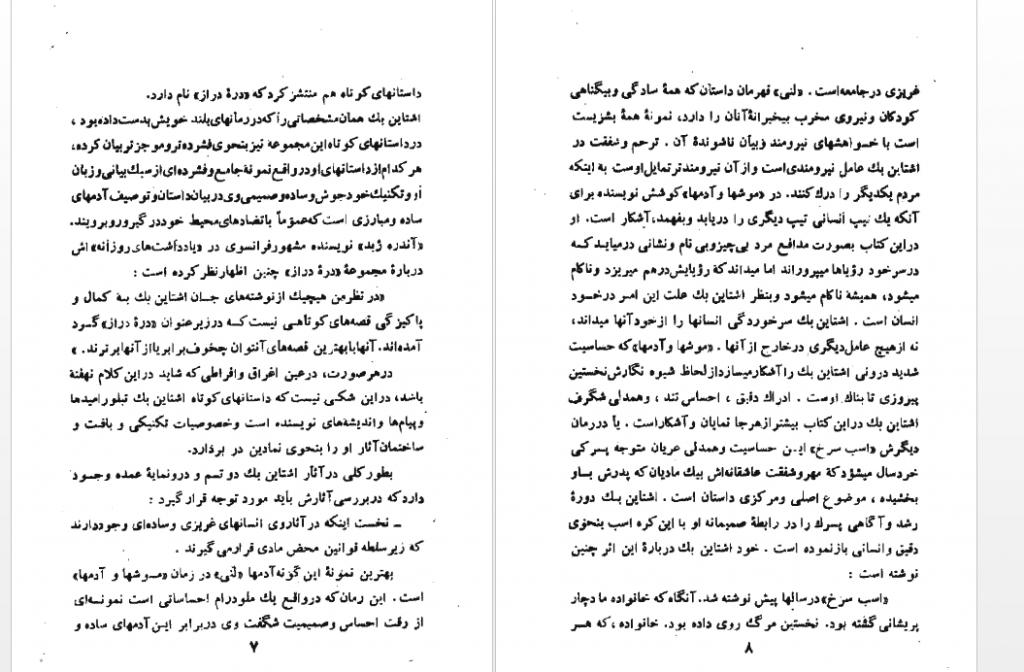 داستانهای کوتاه هم منتشر کرد که «درهٔ دراز» نام دارد.
اشتاین بك همان مشخصاتی را که در رمانهای بلند خویش بدست داده بود ،
در داستانهای کوتاه این مجموعه نیز بنحوی فشرده تر و موجز تر بیان کرده،
هر کدام از داستانهای او در واقع نمونهٔ جامع و فشرده‌ای از سبك بیانی و زبان
او و تکنیك خود جوش و ساده و صمیمی وی در بیان داستان و توصیف آدمهای
ساده و مبارزی است که عموماً با تضادهای محیط خود درگیر و روبرویند.
«آندره ژید» نویسنده مشهور فرانسوی در «یادداشت‌های روزانه» اش
دربارهٔ مجموعهٔ «درهٔ دراز» چنین اظهار نظر کرده است :
«در نظر من هیچیك از نوشته‌های جان اشتاین بك به کمال و
پاکیزگی قصه‌های کوتاهی نیست که در زیر عنوان «درهٔ دراز» گرد
آمده‌اند. آنها با بهترین قصه‌های آنتوان چخوف برابر یا از آنها برترند. »
در هر صورت، در عین اغراق و افراطی که شاید در این کلام نهفته
باشد، در این شکی نیست که داستانهای کوتاه اشتاین بك تبلور امیدها
و پیام‌ها و اندیشه‌های نویسنده است و خصوصیات تکنیکی و بافت و
ساختمان آثار او را بنحوی نمادین در بردارد.
بطور کلی در آثار اشتاین بك دو قسم و درونمایهٔ عمده وجود
دارد که در بررسی آثارش باید مورد توجه قرار گیرد :
ـ نخست اینکه در آثار وی انسانهای غریزی و ساده‌ای وجود دارند
که زیر سلطه قوانین محض مادی قرار می گیرند .
بهترین نمونهٔ این گونه آدمها «لنی» در زمان «موشها و آدمها»
است . این رمان که در واقع یك ملودرام احساساتی است نمونه‌ای
از وقت احساس و صمیمیت شگفت وی در برابر این آدمهای ساده و
۷
غریزی در جامعه است . «لنی» قهرمان داستان که همهٔ سادگی و بیگناهی
کودکان و نیروی مخرب بیخبرانهٔ آنان را دارد، نمونهٔ همهٔ بشریست
است با خواهشهای نیرومند و بیان ناشوندهٔ آن . ترحم و شفقت در
اشتاین بك عامل نیرومندی است و از آن نیرومندتر تمایل اوست به اینکه
مردم یکدیگر را درك کنند. در «موشها و آدمها» کوشش نویسنده برای
آنکه یك تیپ انسانی تیپ دیگری را دریابد و بفهمد، آشکار است. او
در این کتاب بصورت مدافع مرد بی‌چیز و بی نام و نشانی در میاید که
در سر خود رؤیاها میپروراند اما میداند که رؤیایش درهم میریزد و ناکام
میشود، همیشه ناکام میشود و بنظر اشتاین بك علت این امر در خود
انسان است . اشتاین بك سرخوردگی انسانها را از خود آنها میداند،
نه از هیچ عامل دیگری در خارج از آنها . «موشها و آدمها» که حساسیت
شدید درونی اشتاین بك را آشکار میسازد از لحاظ شیوه نگارش نخستین
پیروزی تابناك اوست . ادراك دقیق ، احساس تند ، و همدلی شگرف
اشتاین بك در این کتاب بیشتر از هر جا نمایان و آشکار است . یا در رمان
دیگرش «اسب سرخ» این حساسیت و همدلی عریان متوجه پسرکی
خردسال میشود که مهر و شفقت عاشقانه‌اش بیك مادیان که پدرش باو
بخشیده ، موضوع اصلی و مرکزی داستان است . اشتاین بك دورهٔ
رشد و آگاهی پسرك را در رابطهٔ صمیمانه او با این کره اسب بنحوی
دقیق و انسانی باز نموده است . خود اشتاین بك دربارهٔ این اثر چنین
نوشته است :
«اسب سرخ» در سالها پیش نوشته شد. آنگاه که خانواده ما دچار
پریشانی گفته بود. نخستین مرگ روی داده بود. خانواده ، که هر
۸